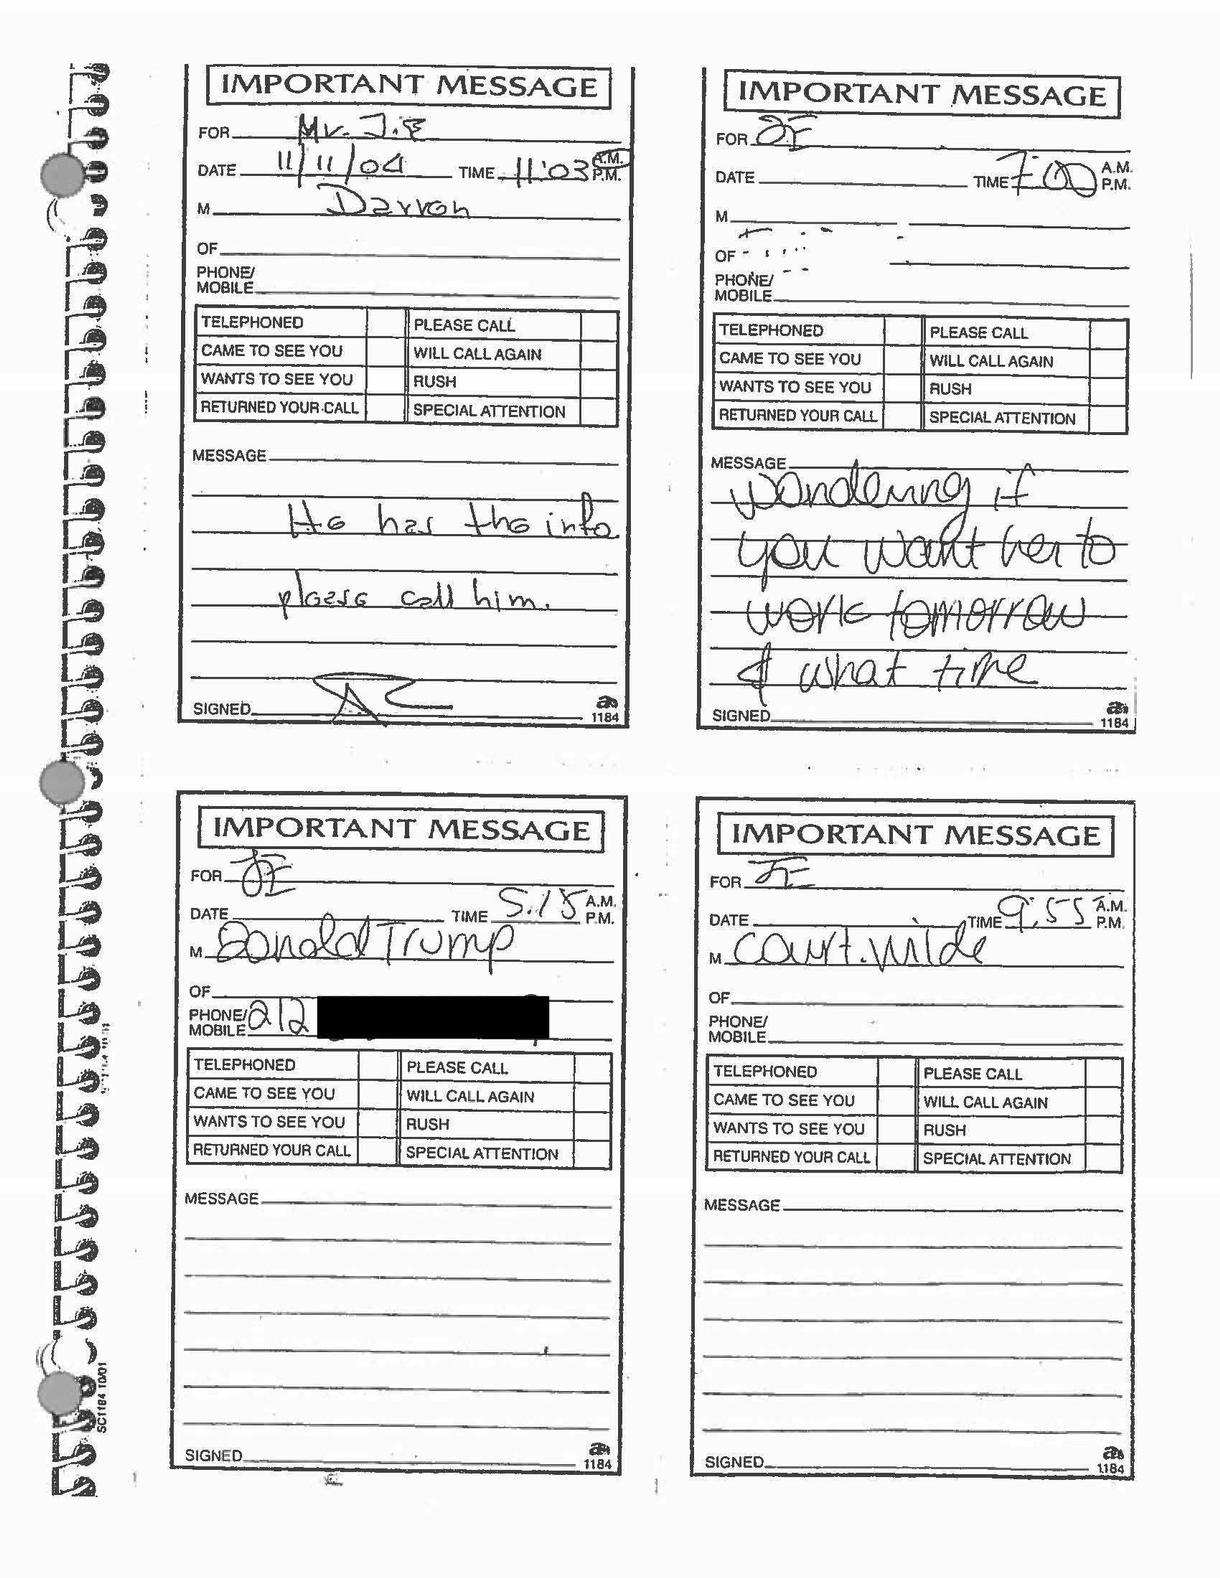 IMPORTANT MESSAGE
FOR Mr. J.E
DATE 11/11/04 TIME 11:03 A.M. P.M.
M Darren
OF
PHONE/
MOBILE
TELEPHONED PLEASE CALL
CAME TO SEE YOU WILL CALL AGAIN
WANTS TO SEE YOU RUSH
RETURNED YOUR CALL SPECIAL ATTENTION
MESSAGE
He has the info
please call him.
SIGNED
1184
IMPORTANT MESSAGE
FOR JE
DATE TIME 7:00 A.M. P.M.
M
OF
PHONE/
MOBILE
TELEPHONED PLEASE CALL
CAME TO SEE YOU WILL CALL AGAIN
WANTS TO SEE YOU RUSH
RETURNED YOUR CALL SPECIAL ATTENTION
MESSAGE
wondering if
you want her to
work tomorrow
& what time
SIGNED
1184
IMPORTANT MESSAGE
FOR JE
DATE TIME 5:15 A.M. P.M.
M Donald Trump
OF
PHONE/
MOBILE 212
TELEPHONED PLEASE CALL
CAME TO SEE YOU WILL CALL AGAIN
WANTS TO SEE YOU RUSH
RETURNED YOUR CALL SPECIAL ATTENTION
MESSAGE
SIGNED
1184
IMPORTANT MESSAGE
FOR JE
DATE TIME 9:55 A.M. P.M.
M Court. Wilde
OF
PHONE/
MOBILE
TELEPHONED PLEASE CALL
CAME TO SEE YOU WILL CALL AGAIN
WANTS TO SEE YOU RUSH
RETURNED YOUR CALL SPECIAL ATTENTION
MESSAGE
SIGNED
1184
SC1184 10/01